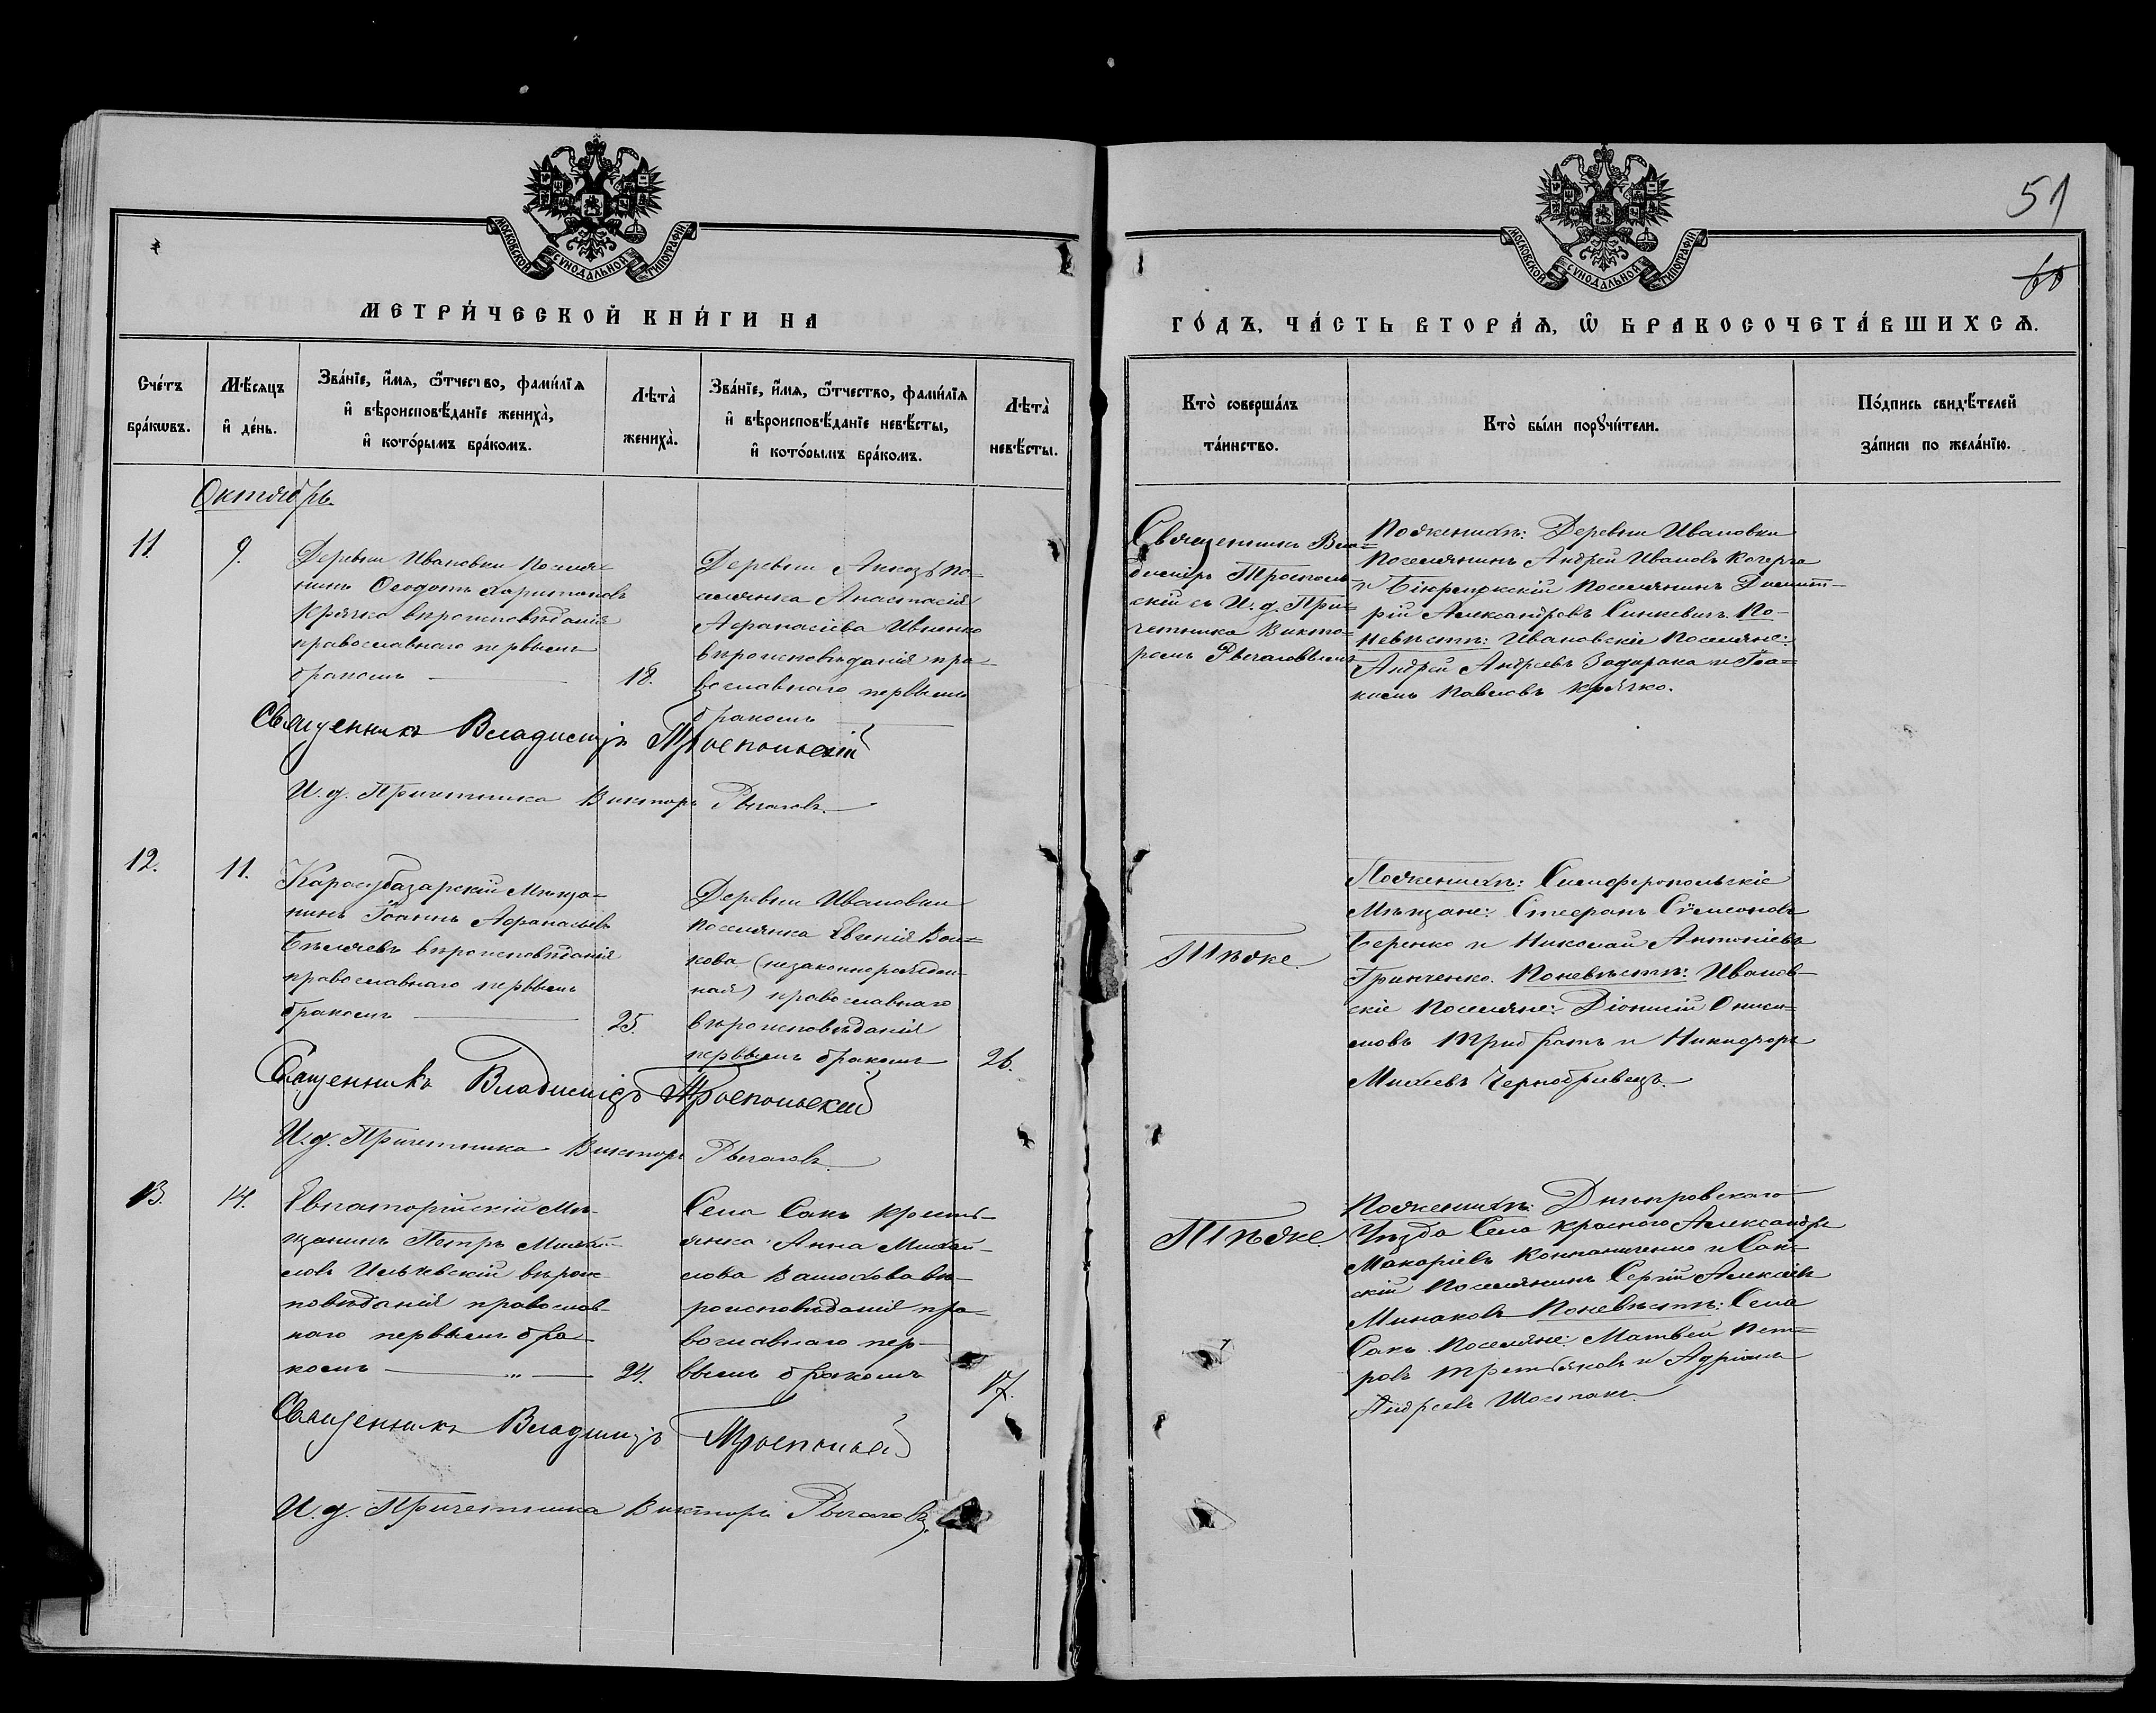 МОСКОВСКОЙ СѴНОДАЛЬНОЙ ТИПОГРАФІИ
МЕТРИ́ЧЕСКОЙ КНИ́ГИ НА
Сче́тъ бра́кωвъ.
Мѣ́сяцъ и҆ де́нь.
Зва́нїе, и҆́мя, ѻ҆́тчество, фами́лїя
и҆ вѣроисповѣ́данїе жениха̀,
и҆ кото́рымъ бра́комъ.
Лѣта̀ жениха̀.
Зва́нїе, и҆́мя, ѻ҆́тчество, фами́лїя
и҆ вѣроисповѣ́данїе невѣ́сты,
и҆ кото́рымъ бра́комъ.
Лѣта̀ невѣ́сты.
Октябрь
11.
9.
Деревни Ивановки Поселя-
нинъ Ѳеодотъ Харитоновъ
Крячко вѣроисповѣданія
православнаго первымъ
бракомъ
18.
Деревни По-
селянка Анастасія
Афанасіева Ивненко
вѣроисповѣданія пра-
вославнаго первымъ
бракомъ
Священникъ Владимиръ Троепольскій
И. д. Причетника Викторъ Рычаговъ.
12.
11.
Карасубазарскій Мѣща-
нинъ Іоаннъ Афанасьевъ
Бѣляевъ вѣроисповѣданія
православнаго первымъ
бракомъ
25.
Деревни Ивановки
поселянка Евгенія Вол-
кова (незаконнорожден-
ная) православнаго
вѣроисповѣданія
первымъ бракомъ
26.
Священникъ Владиміръ Троепольскій
И. д. Причетника Викторъ Рычаговъ.
13.
14.
Евпаторійскій Мѣ-
щанинъ Петръ Михай-
ловъ Ильчевскій вѣроис-
повѣданія православ-
наго первымъ бра-
комъ
24.
Села Сакъ Кресть-
янка Анна Михай-
лова вѣ-
роисповѣданія пра-
вославнаго пер-
вымъ бракомъ
17.
Священникъ Владимиръ Троепольскій
И. д. Причетника Викторъ Рычаговъ.
51
МОСКОВСКОЙ СѴНОДАЛЬНОЙ ТИПОГРАФІИ
ГО́ДЪ, ЧА́СТЬ ВТОРА́Я, Ѡ҆ БРАКОСОЧЕТА́ВШИХСЯ.
Кто̀ соверша́лъ
та́инство.
Кто̀ бы́ли порꙋчи́тели.
По́дпись свидѣ́телей
за́писи по жела́нїю.
Священникъ Вла-
димиръ Троеполь-
скій съ И. д. При-
четника Викто-
ромъ Рычаговымъ
По женихѣ: Деревни Ивановки
Поселянинъ Андрей Ивановъ Кочерга
и Поселянинъ Димит-
рій Александровъ Синкевичъ. По
невѣстѣ: Ивановскіе Поселяне:
Андрей Андреевъ Задорака и Іоа-
кимъ Павловъ Крячко.
Тѣ же.
По женихѣ: Симферопольскіе
Мѣщане: Стефанъ Сѵмеоновъ
Беренко и Николай Антоніевъ
Гринченко. По невѣстѣ: Иванов-
скіе Поселяне: Діонисій Ониси-
мовъ Трибратъ и Никифоръ
Михеевъ Чернобривецъ.
Тѣ же.
По женихѣ: Днѣпровскаго
Уѣзда Села Краснаго Александръ
Макаріевъ Компаниченко и Сак-
скій Поселянинъ Сергій Алексѣевъ
Минаковъ По невѣстѣ: Села
Сакъ Поселяне: Матвей Пет-
ровъ Третьяковъ и Адріанъ
Андреевъ Шостакъ.